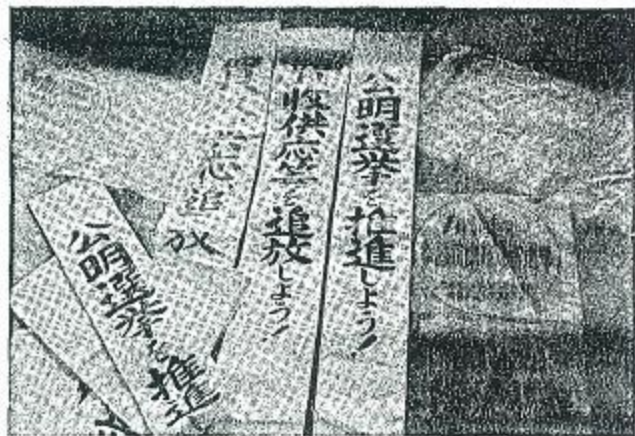 公明選挙を推進しよう!
買収供応等を追放しよう!
追放
公明選挙を推進